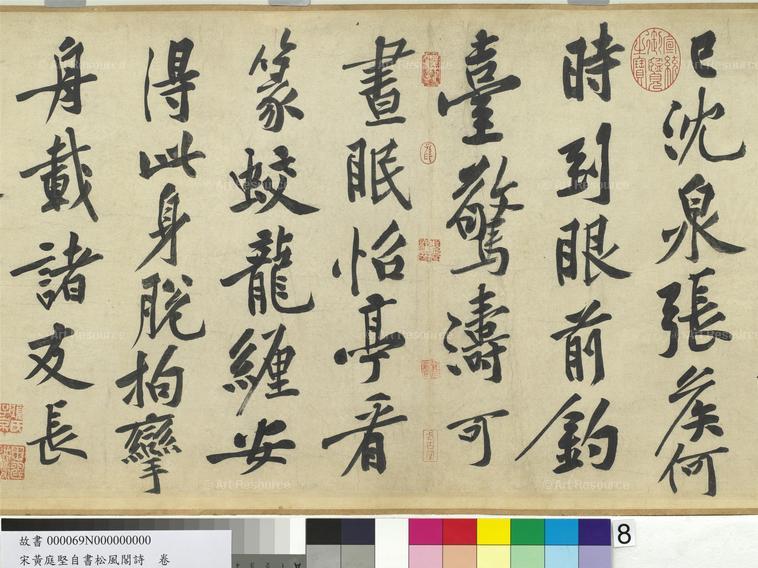 已沈泉張矦何
時到眼前釣
臺驚濤可
晝眠怡亭看
篆蛟龍纏安
得此身脫拘攣
舟載諸友長
宣統御覽之寶
© Art Resource
8
A
故書 000069N000000000
宋黃庭堅自書松風閣詩 卷